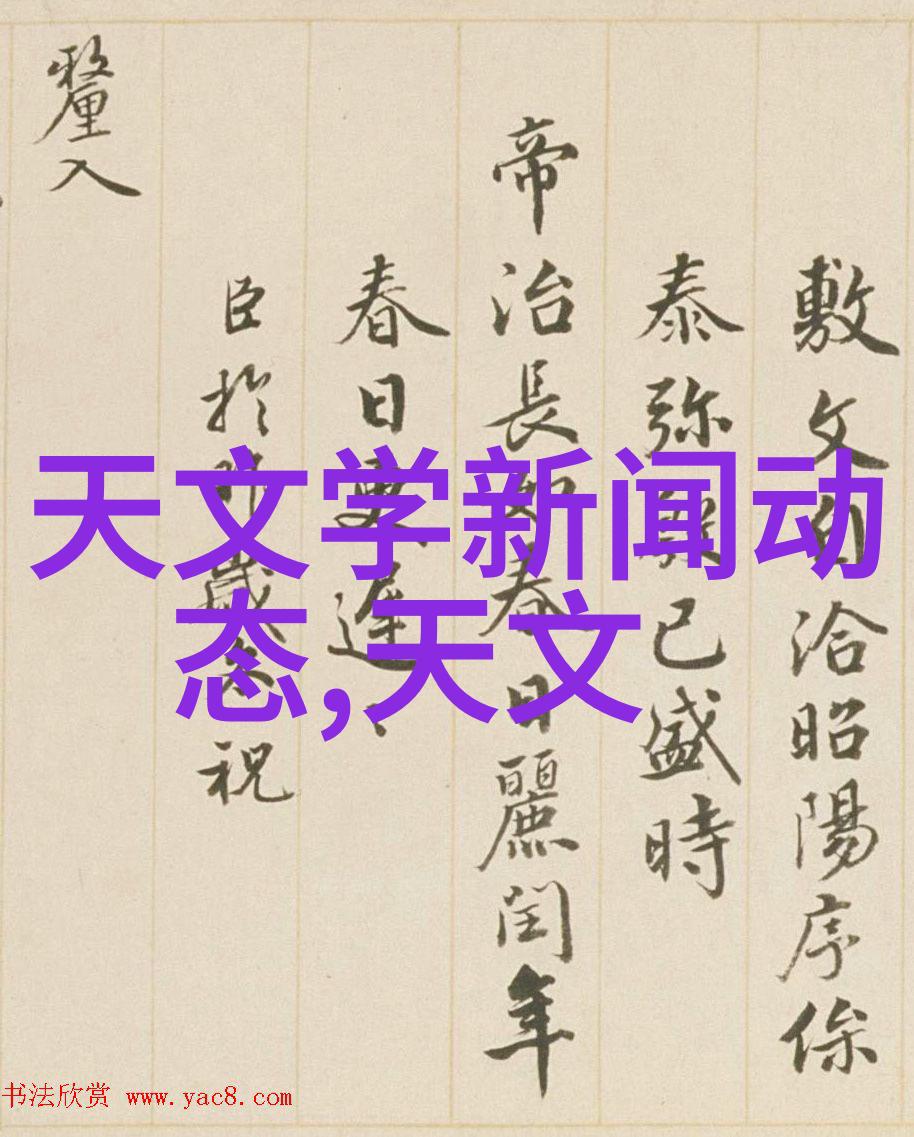 敷文洽昭陽序保
泰弥已盛時
帝治長如春日麗閏年
春日更遲〻
臣於祝
釐入
天文学新闻动
态,天文
书法欣赏 www.yac8.com